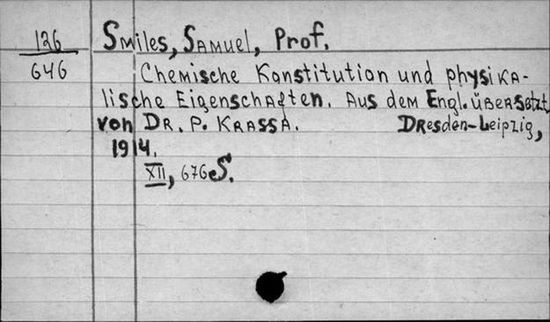 126
646
Smiles, Samuel, Prof.
Chemische Konstitution und physika-
lische Eigenschaften. Aus dem Engl. übersetzt
von Dr. P. Krassa. Dresden-Leipzig,
1914.
XII, 676 S.